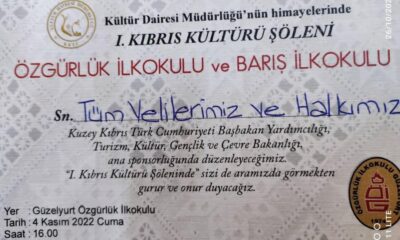 Kültür Dairesi Müdürlüğü'nün himayelerinde
I. KIBRIS KÜLTÜRÜ ŞÖLENİ
ÖZGÜRLÜK İLKOKULU ve BARIŞ İLKOKULU
Sn. Tüm Velilerimiz ve Halkımız
Kuzey Kıbrıs Türk Cumhuriyeti Başbakan Yardımcılığı,
Turizm, Kültür, Gençlik ve Çevre Bakanlığı,
ana sponsorluğunda düzenleyeceğimiz.
"I. Kıbrıs Kültürü Şöleninde" sizi de aramızda görmekten
gurur ve onur duyacağız.
Yer : Güzelyurt Özgürlük İlkokulu
Tarih : 4 Kasım 2022 Cuma
Saat : 16.00
ÖZGÜRLÜK İLKOKULU